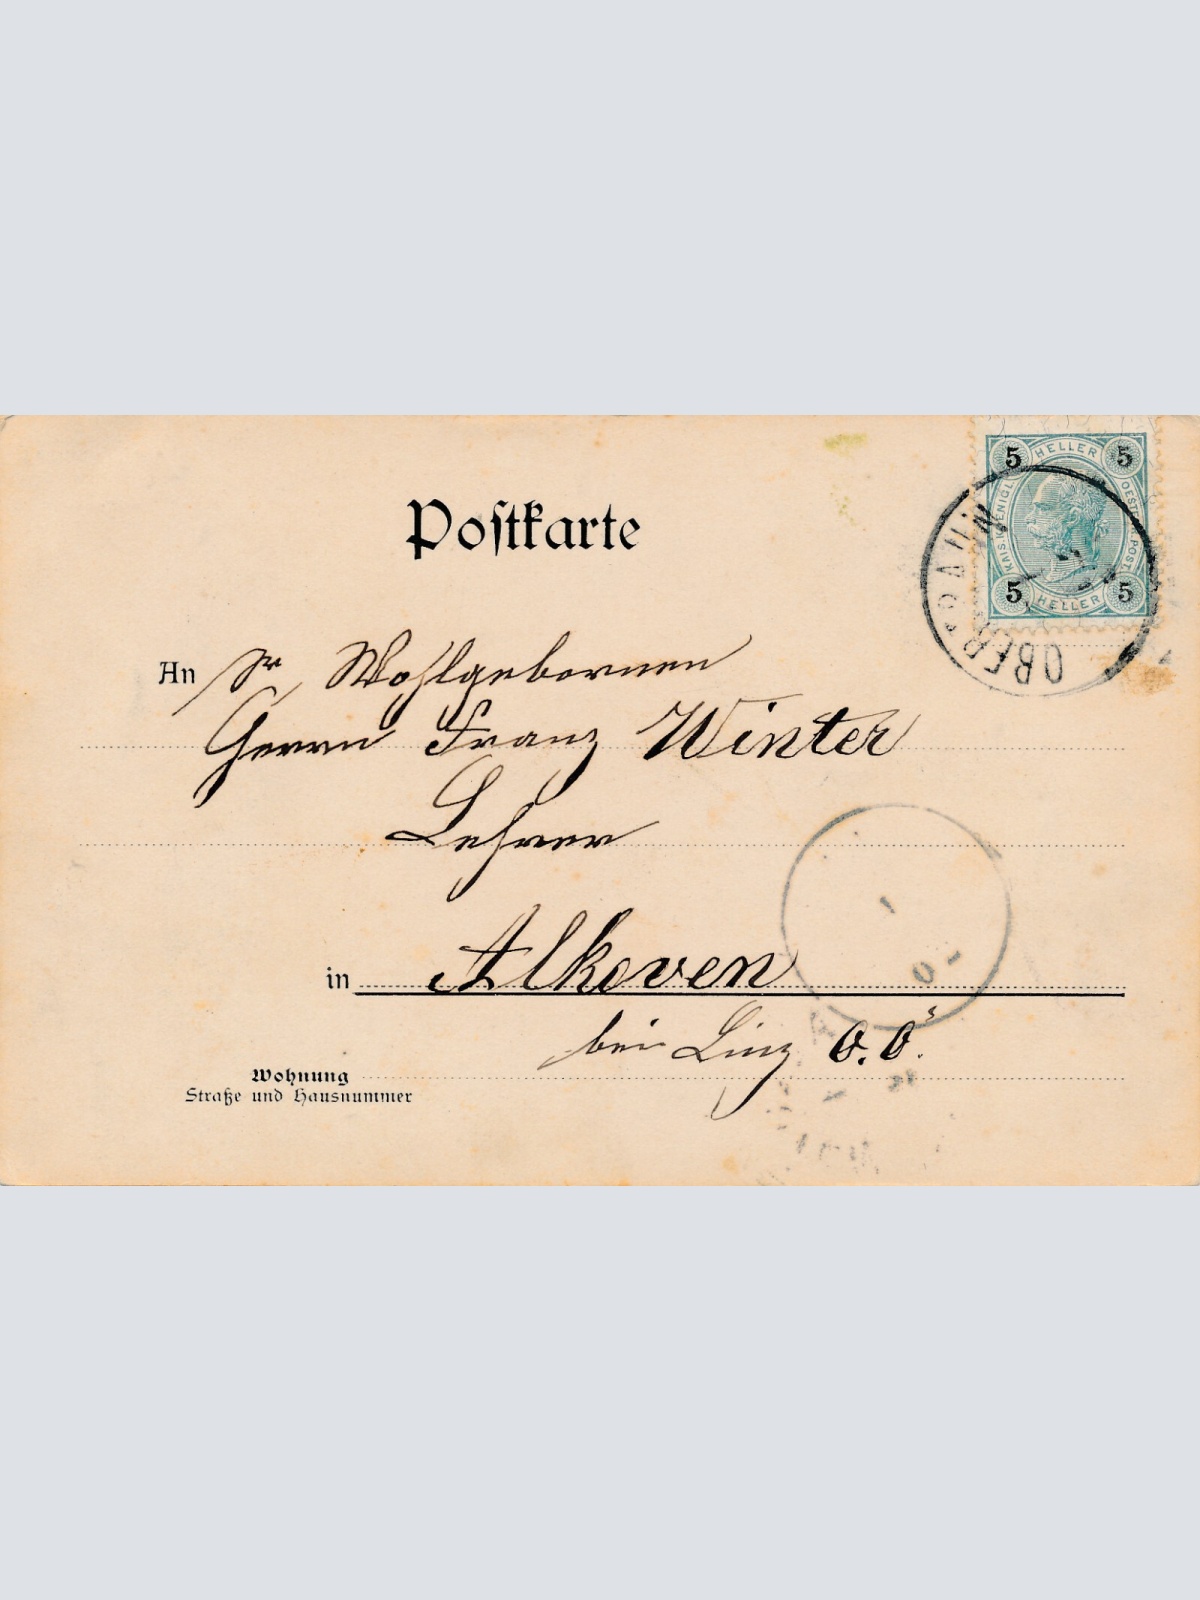 Postkarte
5 HELLER 5
KAIS. KOENIGL. OESTERR. POST
5 HELLER 5
OBER
An Sr. Wohlgebornen
Herrn Franz Winter
Lehrer
in Alkoven
bei Linz O.Ös.
Wohnung
Straße und Hausnummer